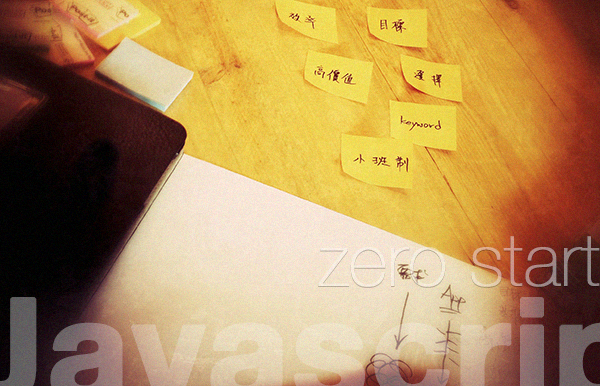 目標
高價值
選擇
keyword
小班制
zero start
App
Javascrip